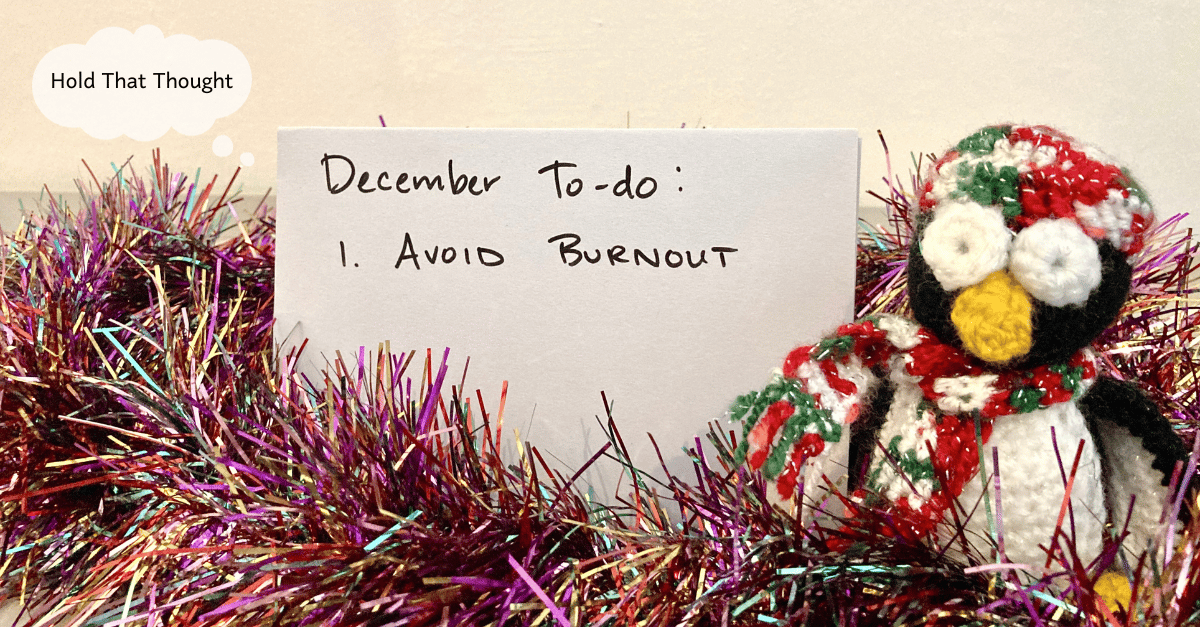 Hold That Thought
December To-do:
1. AVOID BURNOUT